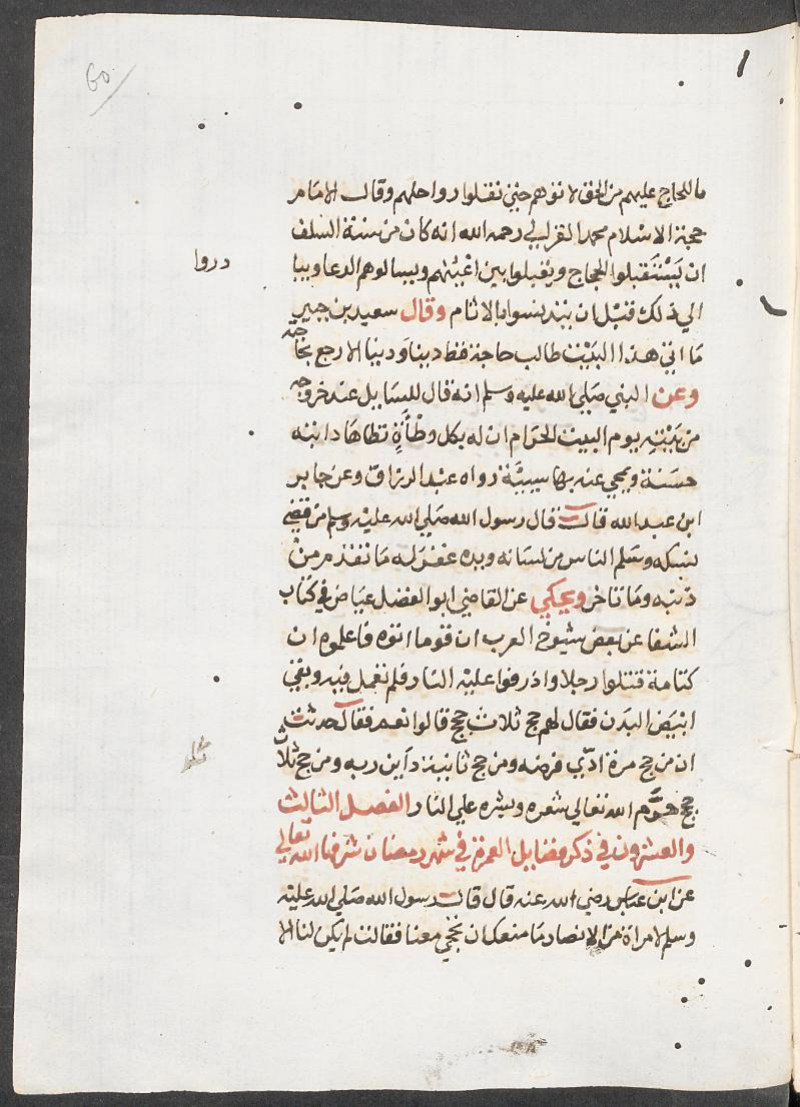 60
ما للحاج عليهم من الحق لاتوهم حتى يقبلوا رواحلهم وقال الامام
حجة الاسلام محمد الغزالي رحمه الله انه كان من سنة السلف
ان يستقبلوا الحجاج ويقبلوا بين اعينهم ويسالوهم الدعا ويبا
دروا
الي ذلك قبل ان يتدنسوا بالاثام وقال سعيد بن جبير
ما اتى هذا البيت طالب حاجة قط دينا ودنيا الا رجع بحاجته
وعن النبي صلي الله عليه وسلم انه قال للسايل عند خروجه
من بيته يوم البيت الحرام ان له بكل وطأة تطاها دابته
حسنة ويمحي عنه بها سيئة رواه عبد الرزاق وعن جابر
ابن عبد الله قال قال رسول الله صلي الله عليه وسلم من قضي
نسكه وسلم الناس من لسانه ويده غفر له ما تقدم من
ذنبه وما تاخر ويحكي عن القاضي ابو الفضل عياض في كتاب
الشفا عن بعض شيوخ العرب ان قوما اتوه فاعلموه ان
كتامة قتلوا رجلا واذرفوا عليه النار فلم تعمل فيه وبقي
ابيض البدن فقال لهم حج ثلاث حجج قالوا نعم فقال حدثت
ان من حج مرة ادي فرضه ومن حج ثانية داين ربه ومن حج ثلاث
حجج حرم الله تعالي شعره وبشره علي النار الفصل الثالث
والعشرون في ذكر فضايل العمرة في شهر رمضان شرفنا الله تعالي
عن ابن عباس رضي الله عنه قال قال رسول الله صلي الله عليه
وسلم لامراة من الانصار ما منعك ان تحجي معنا فقالت لم يكن لنا الا